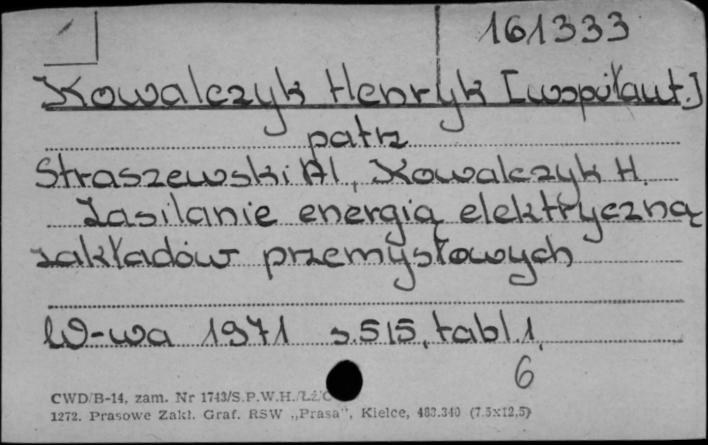 1 161333
Kowalczyk Henryk [współaut.]
patrz
Straszewski Al., Kowalczyk H.
Zasilanie energią elektryczną
zakładów przemysłowych
W-wa 1971 s.515, tabl.1,
6
CWD/B-14, zam. Nr 1743/S.P.W.H./
1272. Prasowe Zakł. Graf. RSW „Prasa”, Kielce, 483.340 (7.5x12,5)